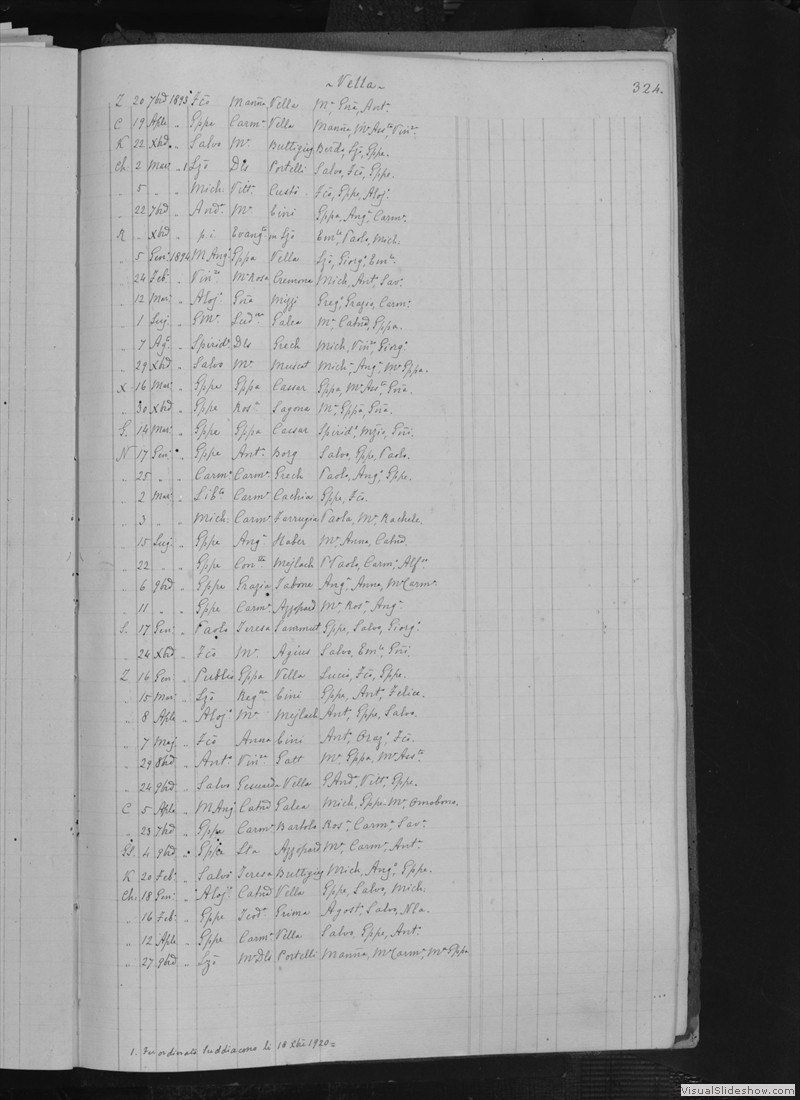 ~ Vella ~
324.
Z 20 7bd 1893 Fco Marña Vella Ma Gña, Ant.
C 19 Aple " Gppe Carma Vella Marña, Ma Assta Vinza
K 22 Xbd " Salvo Ma Buttigieg Berdo, Lzo, Gppe.
Ch. 2 Mar " 1 Lzo Dls Portelli Salvo, Fco, Gppe.
" 5 " " Mich Vitta Custo Fco, Gppe, Aloj.
" 22 7bd " Anda Ma Cini Gppa, Ang. Carma
R " Xbd " p.i. Evangta in Lzo Emle, Paolo, Mich.
" 5 Gen. 1894 M Ang. Gppa Vella Lzo, Giorgo, Emle
" 24 Feb. " Vinzo Ma Rosa Cremona Mich, Ant, Sav.
" 12 Mar. " Aloj. Gña Mizzi Greg. Grazio, Carmo
" 1 Lug " GMa Ludma Galea Ma Catnd, Gppa.
" 7 Ago " Spirido Dls Grech Mich, Vinzo, Giorgo
" 29 Xbd " Salvo Ma Muscat Mich, Ang. Ma Gppa.
X 16 Mar. " Gppe Gppa Cassar Gppa, Ma Assta Gña.
" 30 Xbd " Gppe Rosa Sagona Ma Gppa, Gña.
G. 14 Mar. " Gppe Gppa Cassar Spirido, Mzio, Gñi.
N 17 Gen. " Gppe Anta Borg Salvo, Gppe, Paolo.
" 25 " " Carmo Carma Grech Paolo, Ang. Gppe.
" 2 Mar. " Libto Carma Cachia Gppe, Fco.
" 3 " " Mich. Carma Farrugia Paola, Ma Rachele.
" 15 Lug. " Gppe Anga Haber Ma Anna, Catnd.
" 22 " " Gppe Conta Mejlach P. Paolo, Carmo Alfso
" 6 9bd " Gppe Grazia Tabone Anga Anna, Ma Carma
" 11 " " Gppe Carma Azzopard Ma, Rosa, Anga
S. 17 Gen. " Paolo Teresa Sammut Gppe, Salvo, Giorgo
" 24 Xbd " Fco Ma Agius Salvo, Emle Gñi.
Z 16 Gen. " Publio Gppa Vella Lucio, Fco, Gppe.
" 15 Mar. " Lzo Regna Cini Gppe, Ant, Felice.
" 8 Aple " Aloj. Ma Mejlach Ant, Gppe, Salvo.
" 7 Maj. " Fco Anna Cini Ant, Orazo, Fco.
" 29 8bd " Anto Vinza Gatt Ma Gppa, Ma Assta
" 24 9bd " Salvo Gesuarda Vella G. Anda, Vitto, Gppe.
C 5 Aple " M Ang. Catnd Galea Mich, Gppe Ma, Omobono.
" 23 7bd " Gppe Carma Bartolo Rosa Carma, Sava
Gs. 4 9bd " Gppe Lta Azzopard Ma, Carma, Anta
K 20 Feb. " Salvo Teresa Buttigieg Mich, Anga, Gppa.
Ch. 18 Gen. " Aloj. Catnd Vella Gppe, Salvo, Mich.
" 16 Feb. " Gppe Teoda Grima Agost., Salvo, Nla.
" 12 Aple " Gppe Carma Vella Salvo, Gppe, Ant.
" 27 9bd " Lzo Ma Dls Portelli Marña, Ma Carma, Ma Gppa
1. Fu ordinato Suddiacono li 18 Xbre 1920=
VisualSlideshow.com